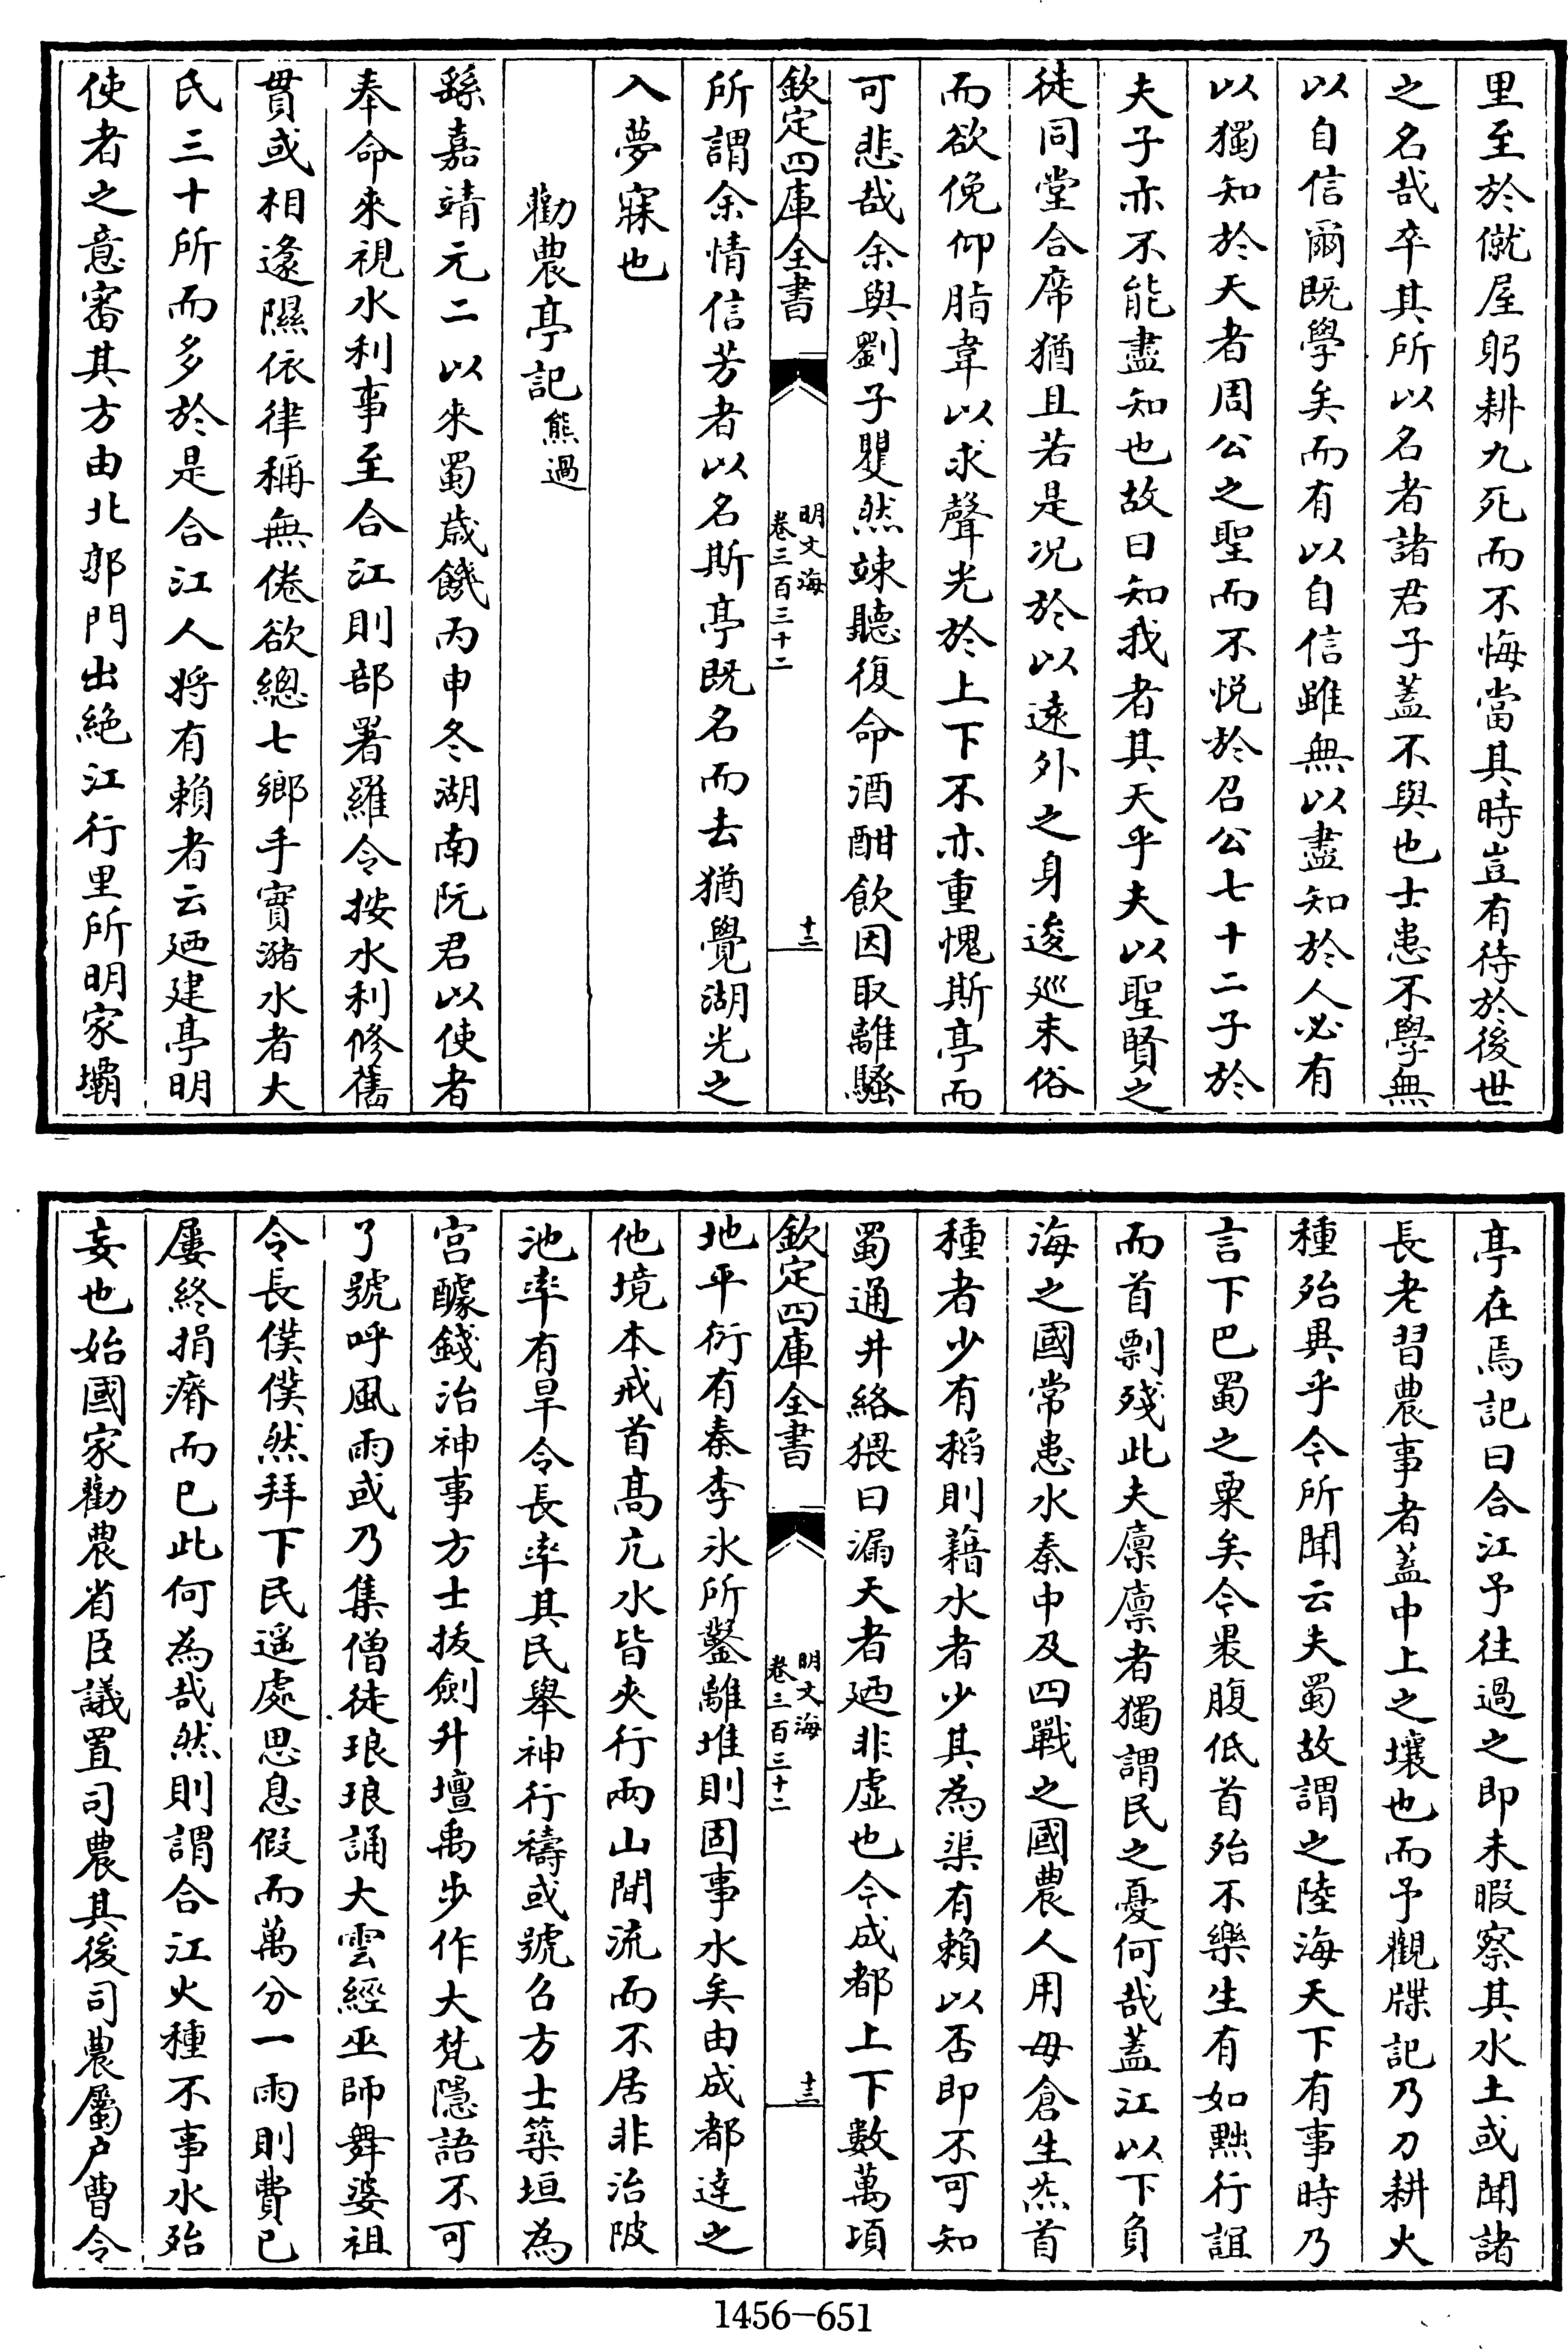 里至於僦屋躬耕九死而不悔當其時豈有待於後世
之名哉卒其所以名者諸君子蓋不與也士患不學無
以自信爾既學矣而有以自信雖無以盡知於人必有
以獨知於天者周公之聖而不悅於召公七十二子於
夫子亦不能盡知也故曰知我者其天乎夫以聖賢之
徒同堂合席猶且若是况於以遠外之身逡廵末俗
而欲俛仰脂韋以求聲光於上下不亦重愧斯亭而
可悲哉余與劉子瞿然竦聽復命酒酣飲因取離騷
欽定四庫全書
明文海
卷三百三十二
十二
所謂余情信芳者以名斯亭既名而去猶覺湖光之
入夢寐也
勸農亭記熊過
繇嘉靖元二以來蜀歲饑丙申冬湖南阮君以使者
奉命來視水利事至合江則部署羅令按水利修舊
貫或相邍隰依律稱無倦欲總七鄉手實瀦水者大
氏三十所而多於是合江人將有賴者云廼建亭明
使者之意審其方由北郭門出絶江行里所明家壩
亭在焉記曰合江予往過之即未暇察其水土或聞諸
長老習農事者蓋中上之壤也而予觀牒記乃刀耕火
種殆異乎今所聞云夫蜀故謂之陸海天下有事時乃
言下巴蜀之粟矣今褁腹低首殆不樂生有如黠行誼
而首剽殘此夫廪廪者獨謂民之憂何哉蓋江以下負
海之國常患水秦中及四戰之國農人用毋倉生炁首
種者少有稻則藉水者少其為渠有賴以否即不可知
蜀通井絡猥曰漏天者廼非虛也今成都上下數萬頃
欽定四庫全書
明文海
卷三百三十二
十三
地平衍有秦李氷所鑿離堆則固事水矣由成都達之
他境本戒首高亢水皆夾行兩山間流而不居非治陂
池率有旱令長率其民舉神行禱或號召方士築垣為
宮醵錢治神事方士拔劍升壇禹步作大梵隱語不可
了號呼風雨或乃集僧徒琅琅誦大雲經巫師舞婆祖
令長僕僕然拜下民遥處思息假而萬分一雨則費已
屢終捐瘠而已此何為哉然則謂合江火種不事水殆
妄也始國家勸農省臣議置司農其後司農屬户曹令
1456-651